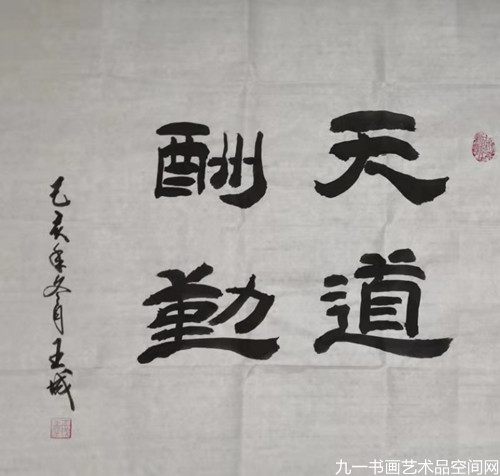 天道
酬勤
己亥年冬月王城
九一书画艺术品空间网